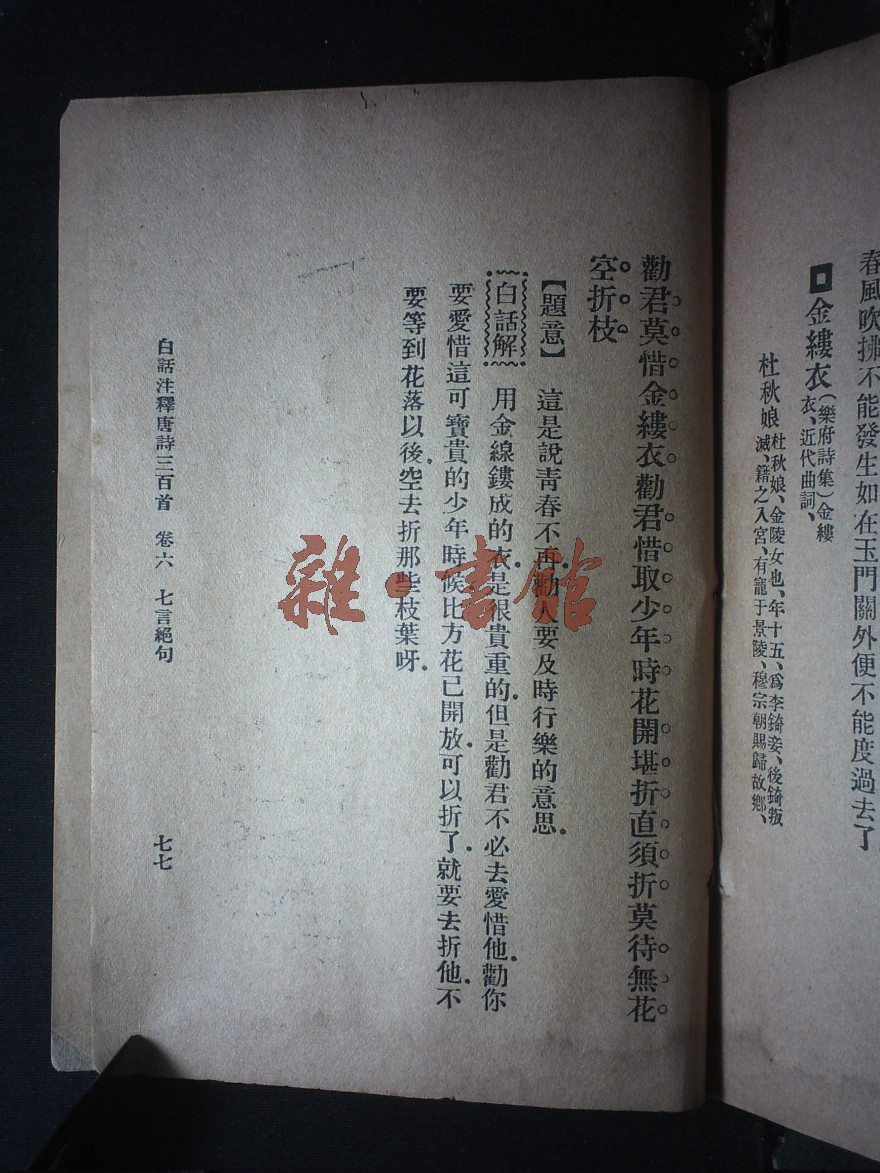 春風吹拂不能發生如在玉門關外便不能度過去了
金縷衣（樂府詩集）金縷
衣、近代曲詞、
杜秋娘 杜秋娘、金陵女也、年十五、爲李錡妾、後錡叛
滅、籍之入宮、有寵于景陵、穆宗朝賜歸故鄉、
勸君莫惜金縷衣勸君惜取少年時花開堪折直須折莫待無花
空折枝
【題意】 這是說靑春不再勸人要及時行樂的意思.
白話解 用金線鏤成的衣是很貴重的.但是勸君不必去愛惜他.勸你
要愛惜這可寶貴的少年時候比方花已開放.可以折了.就要去折他.不
要等到花落以後.空去折那些枝葉呀.
白話注釋唐詩三百首 卷六 七言絕句 七七
雜·書館